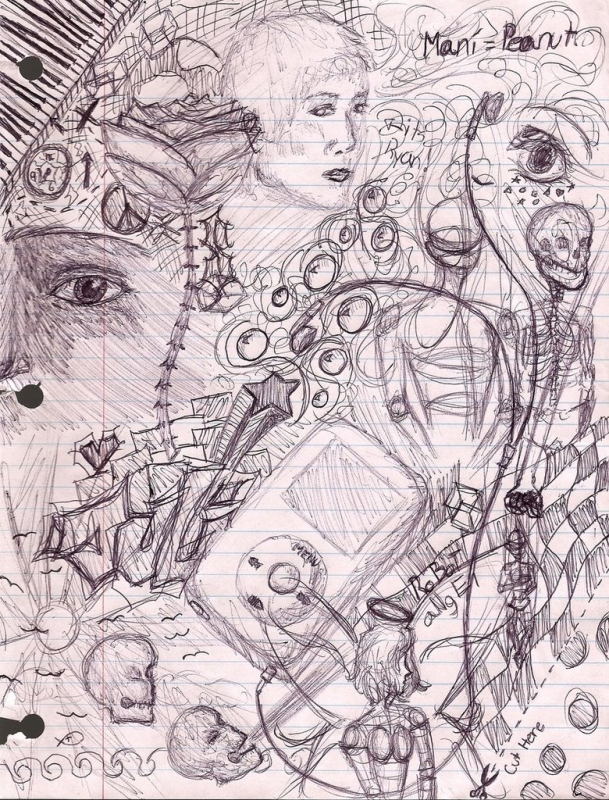 Maní = Peanut
Ryan!
MENU
RoBoT
angEl
Cut Here